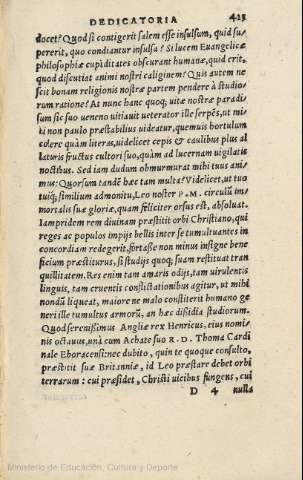 DEDICATORIA 423
docet? Quod si contigerit salem esse insulsum, quid su
pererit, quo condiantur insulsa? Si lucem Euangelicæ
philosophiæ cupiditates obscurant humanæ, quid erit,
quod discutiat animi nostri caliginem? Quis autem ne
scit bonam religionis nostræ partem pendere à studio-
rum ratione? At nunc hanc quoq; uitæ nostræ paradi-
sum sic suo ueneno uitiauit ueterator ille serpẽs, ut mi
ti non paulo præstabilius uideatur, quemuis hortulum
colere quàm literas, uidelicet cepis & caulibus plus al
laturis fructus cultori suo, quàm ad lucernam uigilatis
noctibus. Sed iam dudum obmurmurat mihi tuus ani-
mus: Quorsum tandẽ hæc tam multa? Videlicet, ut tuo
tuiq́; similium admonitu, Leo noster P. M. circulũ im-
mortalis suæ gloriæ, quam feliciter orsus est, absoluat.
Iampridem rem diuinam præstitit orbi Christiano, qui
reges ac populos impijs bellis inter se tumultuantes in
concordiam redegerit, fortasse non minus insigne bene
ficium præstiturus, si studijs quoq; suam restituat tran
quillitatem. Res enim tam amaris odijs, tam uirulentis
linguis, tam cruentis conflictationibus agitur, ut mihi
nondũ liqueat, maiore ne malo constiterit humano ge
neri ille tumultus armorũ, an hæc dissidia studiorum.
Quod serenißimus Angliæ rex Henricus, eius nomi-
nis octauus, unà cum Achate suo R. D. Thoma Cardi
nale Eboracensi: nec dubito, quin te quoque consulto,
præstitit suæ Britanniæ, id Leo præstare debet orbi
terrarum: cui præsidet, Christi uicibus fungens, cui
D 4 nulla
Ministerio de Educación, Cultura y Deporte